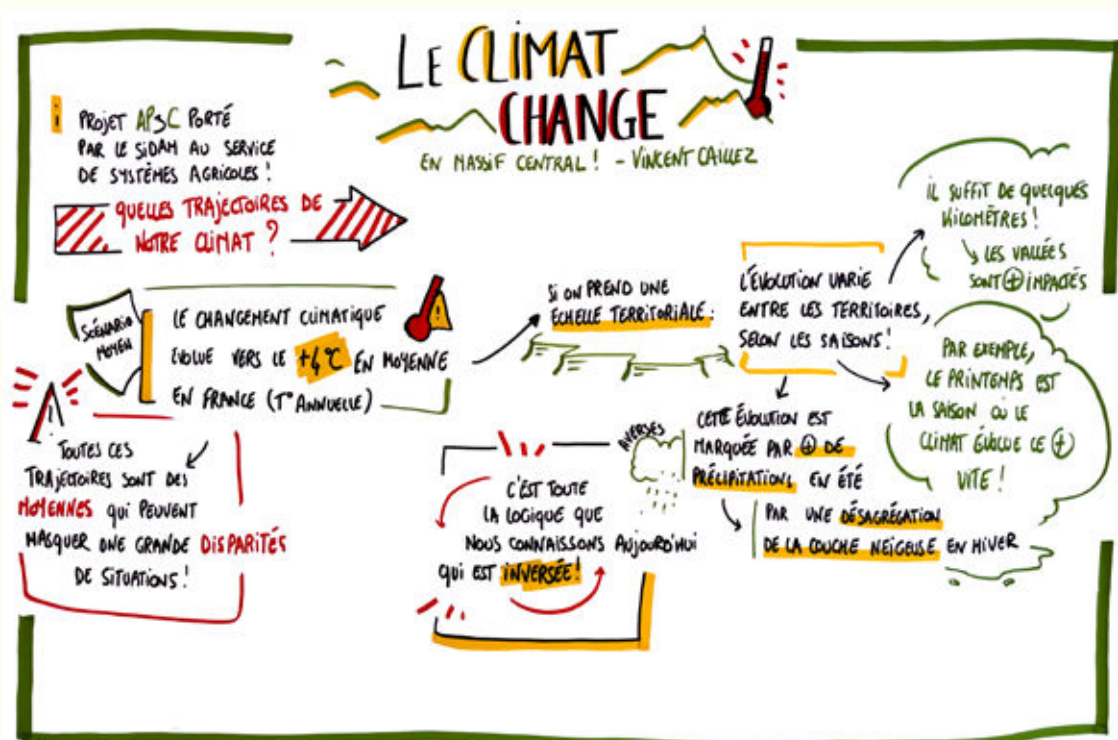 LE CLIMAT
CHANGE
EN MASSIF CENTRAL ! - VINCENT CAILLEZ
PROJET AP3C PORTÉ
PAR LE SIDAM AU SERVICE
DE SYSTÈMES AGRICOLES !
QUELLES TRAJECTOIRES DE
NOTRE CLIMAT ?
SCÉNARIO
MOYEN
LE CHANGEMENT CLIMATIQUE
ÉVOLUE VERS LE +4°C EN MOYENNE
EN FRANCE (T° ANNUELLE)
!
TOUTES CES
TRAJECTOIRES SONT DES
MOYENNES QUI PEUVENT
MASQUER UNE GRANDE DISPARITÉS
DE SITUATIONS !
SI ON PREND UNE
ÉCHELLE TERRITORIALE :
L'ÉVOLUTION VARIE
ENTRE LES TERRITOIRES,
SELON LES SAISONS !
IL SUFFIT DE QUELQUES
KILOMÈTRES !
LES VALLÉES
SONT + IMPACTÉS
PAR EXEMPLE,
LE PRINTEMPS EST
LA SAISON OÙ LE
CLIMAT ÉVOLUE LE +
VITE !
CETTE ÉVOLUTION EST
MARQUÉE PAR + DE
PRÉCIPITATIONS EN ÉTÉ
AVERSES
PAR UNE DÉSAGRÉGATION
DE LA COUCHE NEIGEUSE EN HIVER
C'EST TOUTE
LA LOGIQUE QUE
NOUS CONNAISSONS AUJOURD'HUI
QUI EST INVERSÉE !